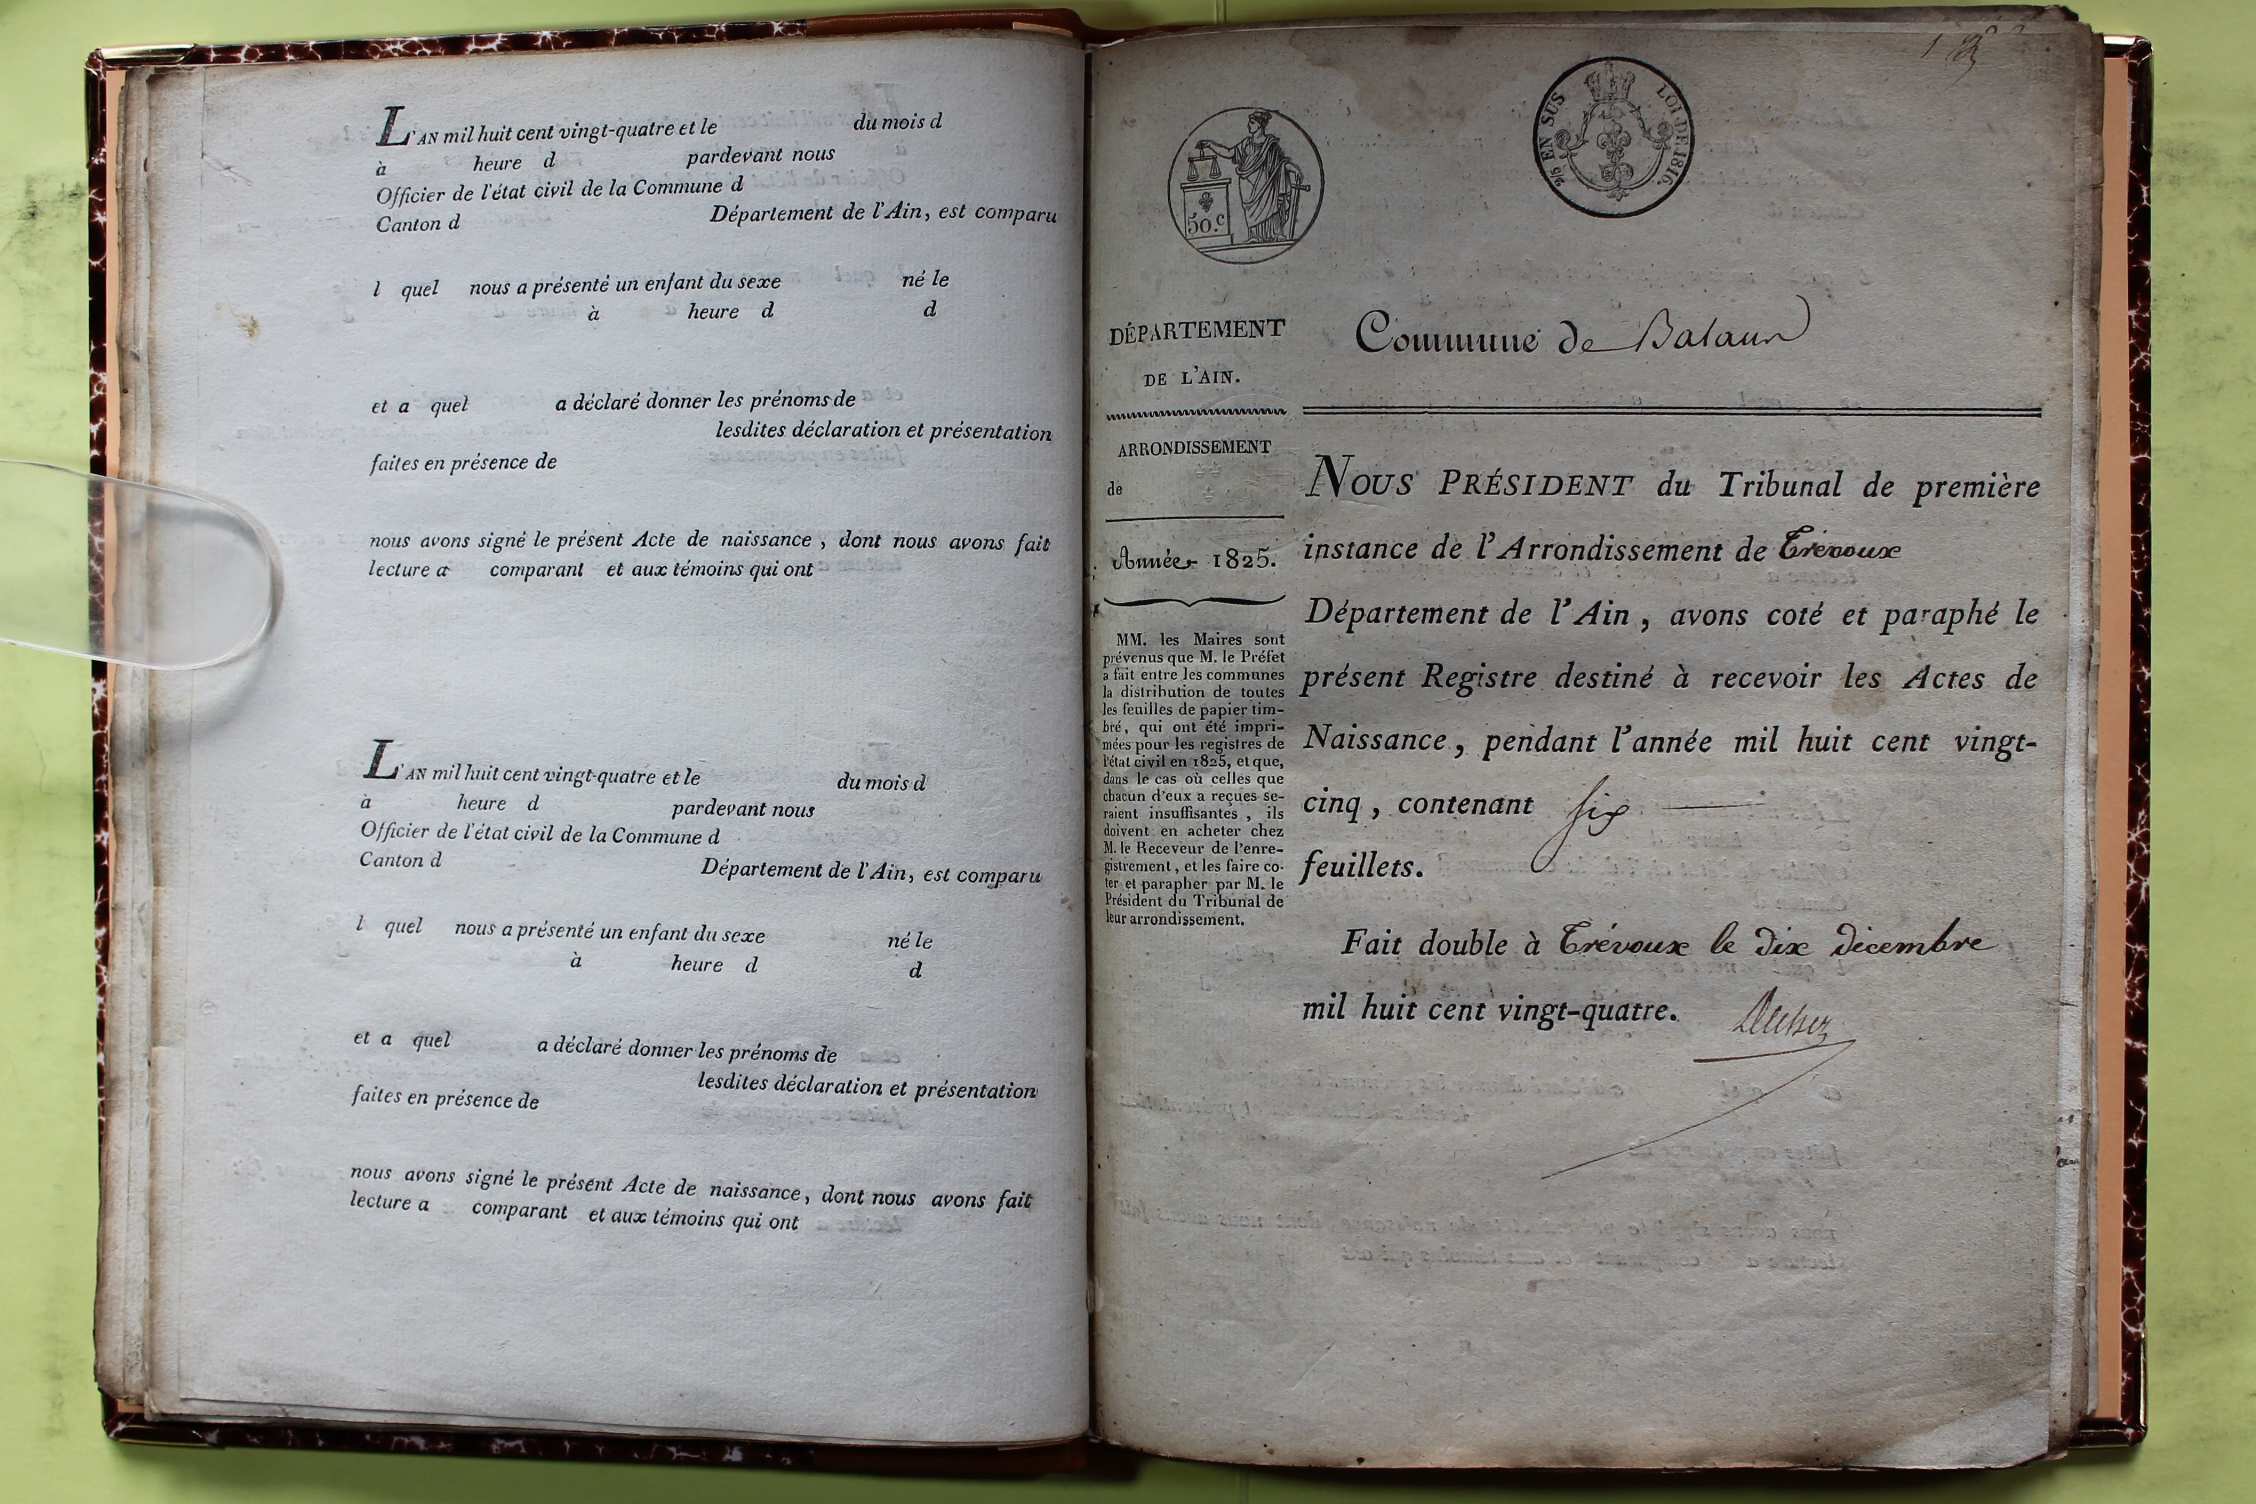 L'AN mil huit cent vingt-quatre et le du mois d
à heure d pardevant nous
Officier de l'état civil de la Commune d
Canton d Département de l'Ain, est comparu
l quel nous a présenté un enfant du sexe né le
à heure d d
et a quel a déclaré donner les prénoms de
lesdites déclaration et présentation
faites en présence de
nous avons signé le présent Acte de naissance, dont nous avons fait
lecture a comparant et aux témoins qui ont
L'AN mil huit cent vingt-quatre et le du mois d
à heure d pardevant nous
Officier de l'état civil de la Commune d
Canton d Département de l'Ain, est comparu
l quel nous a présenté un enfant du sexe né le
à heure d d
et a quel a déclaré donner les prénoms de
lesdites déclaration et présentation
faites en présence de
nous avons signé le présent Acte de naissance, dont nous avons fait
lecture a comparant et aux témoins qui ont
50.c
2/5 EN SUS LOI DE 1816.
DÉPARTEMENT
DE L'AIN.
ARRONDISSEMENT
de
Année 1825.
MM. les Maires sont
prévenus que M. le Préfet
a fait entre les communes
la distribution de toutes
les feuilles de papier tim-
bré, qui ont été impri-
mées pour les registres de
l'état civil en 1825, et que,
dans le cas où celles que
chacun d'eux a reçues se-
raient insuffisantes, ils
doivent en acheter chez
M. le Receveur de l'enre-
gistrement, et les faire co-
ter et parapher par M. le
Président du Tribunal de
leur arrondissement.
Commune de Balaun
NOUS PRÉSIDENT du Tribunal de première
instance de l'Arrondissement de Trévoux
Département de l'Ain, avons coté et paraphé le
présent Registre destiné à recevoir les Actes de
Naissance, pendant l'année mil huit cent vingt-
cinq, contenant six
feuillets.
Fait double à Trévoux le dix décembre
mil huit cent vingt-quatre.